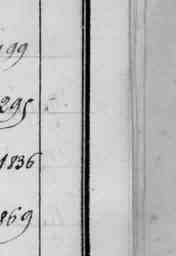 199
295
1836
869